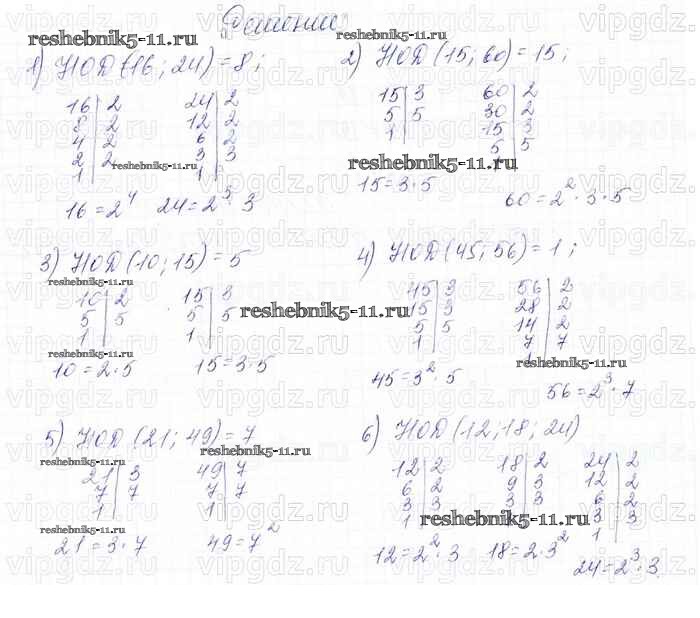 Решение
reshebnik5-11.ru
reshebnik5-11.ru
1) НОД (16; 24) = 8;
16 | 2
8 | 2
4 | 2
2 | 2
1
24 | 2
12 | 2
6 | 2
3 | 3
1
reshebnik5-11.ru
16 = 2⁴
24 = 2³ · 3
2) НОД (15; 60) = 15;
15 | 3
5 | 5
1
60 | 2
30 | 2
15 | 3
5 | 5
reshebnik5-11.ru
15 = 3 · 5
60 = 2² · 3 · 5
3) НОД (10; 15) = 5
reshebnik5-11.ru
10 | 2
5 | 5
1
15 | 3
5 | 5
1
reshebnik5-11.ru
reshebnik5-11.ru
10 = 2 · 5
15 = 3 · 5
4) НОД (45; 56) = 1;
45 | 3
15 | 3
5 | 5
1
56 | 2
28 | 2
14 | 2
7 | 7
reshebnik5-11.ru
45 = 3² · 5
56 = 2³ · 7
5) НОД (21; 49) = 7
reshebnik5-11.ru
reshebnik5-11.ru
21 | 3
7 | 7
1
49 | 7
7 | 7
1
reshebnik5-11.ru
21 = 3 · 7
49 = 7²
6) НОД (12; 18; 24)
12 | 2
6 | 2
3 | 3
1
18 | 2
9 | 3
3 | 3
24 | 2
12 | 2
6 | 2
3 | 3
1
reshebnik5-11.ru
12 = 2² · 3
18 = 2 · 3²
24 = 2³ · 3
vipgdz.ru